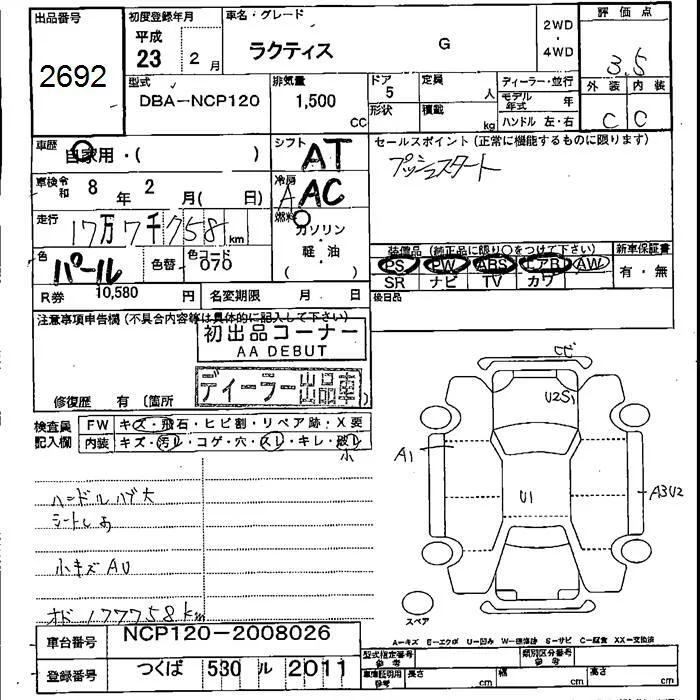 出品番号
2692
初度登録年月
平成
23 2 月
車名・グレード
ラクティス G
2WD
・
4WD
評価点
3.5
外装 内装
C C
型式
DBA-NCP120
排気量
1,500
CC
ドア
5
形状
定員
人
積載
kg
ディーラー・並行
モデル年式 年
ハンドル 左・右
車歴
自家用・( )
シフト
AT
セールスポイント(正常に機能するものに限ります)
プッシュスタート
車検 令和 8 年 2 月( 日)
冷房
AAC
走行
17万7千758km
燃料
ガソリン
・
軽・油
( )
色
パール
色替
色コード
070
装備品(純正品に限り○をつけて下さい)
PS PW ABS エアB AW
SR ナビ TV カワ
新車保証書
有・無
R券 10,580 円
名変期限 月 日
後日品
注意事項申告欄(不具合内容等は具体的に記入して下さい)
初出品コーナー
AA DEBUT
ディーラー出品車
修復歴 有〔箇所
検査員記入欄
FW キズ・飛石・ヒビ割・リペア跡・X要
内装 キズ・汚れ・コゲ・穴・スレ・キレ・破れ
小
ハンドルハゲ大
小キズ AU
オド 177758km
U2S1
A1
U1
A3U2
スペア
A-キズ E-エクボ U-凹み W-補修跡 S-サビ C-腐食 XX-交換済
車台番号 NCP120-2008026
登録番号 つくば 530 ル 2011
型式指定番号
参考
類別区分番号
参考
車庫証明用
参考
長さ cm
幅 cm
高さ cm